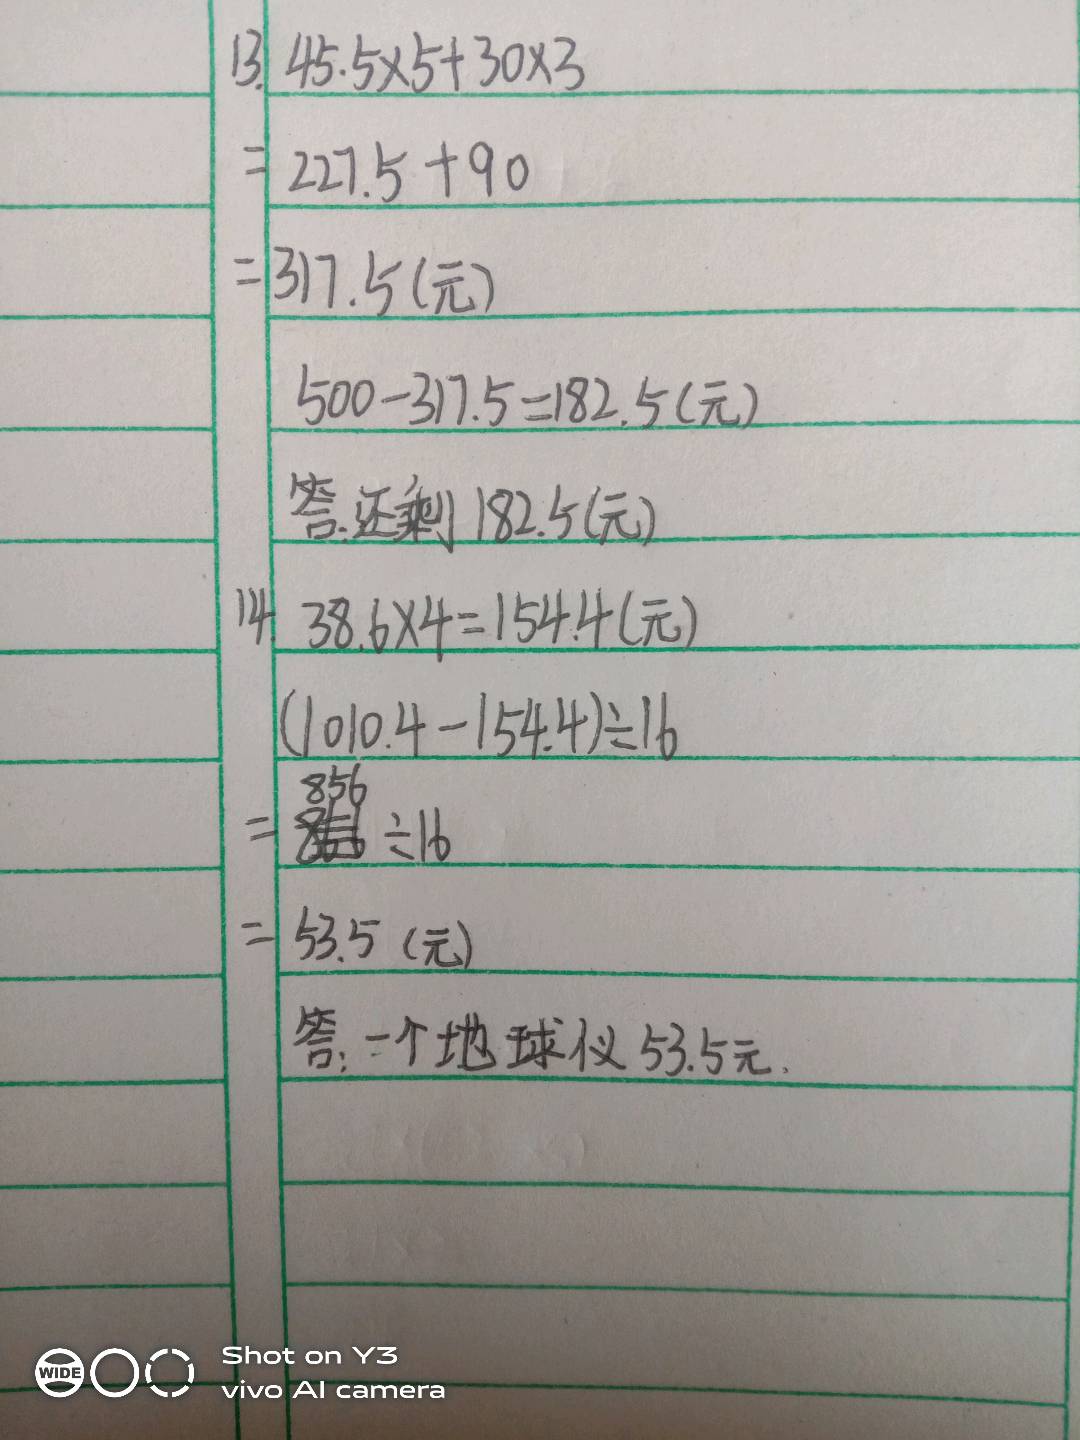 13. 45.5×5+30×3
= 227.5+90
= 317.5(元)
500-317.5=182.5(元)
答:还剩182.5(元)
14. 38.6×4=154.4(元)
(1010.4-154.4)÷16
856
= ÷16
= 53.5 (元)
答:一个地球仪53.5元.
WIDE
Shot on Y3
vivo AI camera